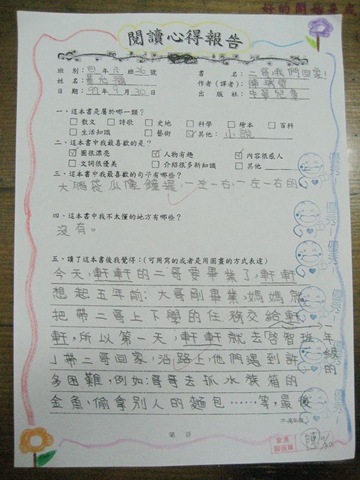 好的開始是成
閱讀心得報告
班別：四年
書名：二哥我們回家！
姓名：
作者(譯者)：
日期：99年4月30日
出版社：
一、這本書是屬於哪一類？
□散文 □詩歌 □史地 □科學 □繪本 □百科
□生活知識 □藝術 ☑其他：小說
二、這本書中我最喜歡的是？
☑圖很漂亮 ☑人物有趣 ☑內容很感人
□文詞很優美 □介紹很多新知識 □其他：
三、這本書中我最喜歡的句子有哪些？
大腦袋瓜像鐘擺，一左一右，一左一右的
四、這本書中我不太懂的地方有哪些？
沒有。
五、讀了這本書後我覺得：(可用寫的或者是用圖畫的方式表達)
今天，軒軒的二哥要畢業了，軒軒
想起五年前：大哥剛畢業，媽媽就
把帶二哥上下學的任務交給軒
軒，所以第一天，軒軒就去啓智班
帶二哥回家，沿路上，他們遇到許
多困難，例如：哥哥去抓水族箱的
金魚，偷拿別人的麵包……等，最後
一年級的
第 頁